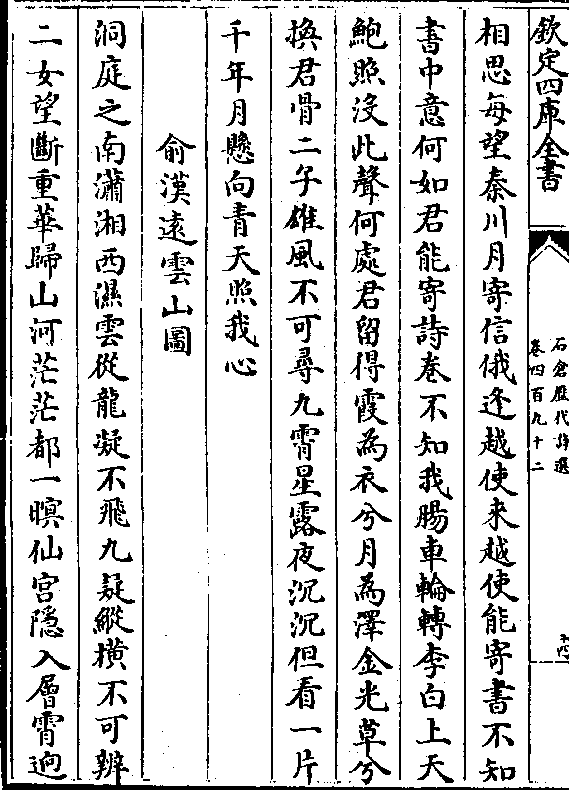 欽定四庫全書
石倉歷代詩選
卷四百九十二
相思每望秦川月寄信俄逢越使来越使能寄書不知
書中意何如君能寄詩卷不知我腸車輪轉李白上天
鮑照沒此聲何處君留得霞為衣兮月為澤金光草兮
換君骨二子雄風不可尋九霄星露夜沉沉但看一片
千年月懸向青天照我心
俞漢逺雲山圖
洞庭之南瀟湘西濕雲從龍凝不飛九疑縱横不可辨
二女望斷重華歸山河茫茫都一暝仙宫隱入層霄逈